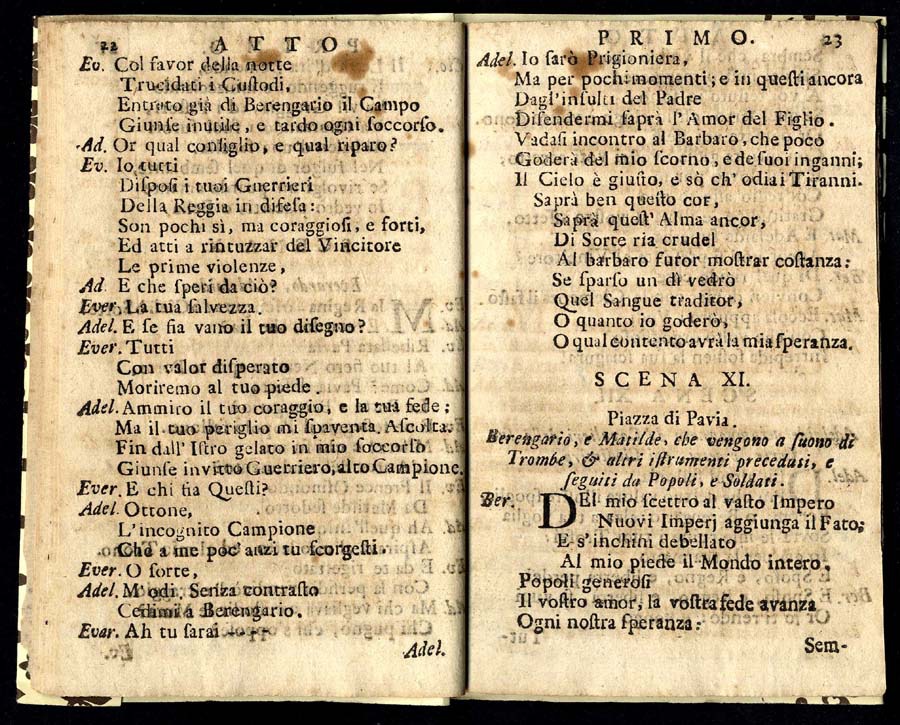 22 ATTO
Ev. Col favor della notte
Trucidati i Cuſtodi,
Entrato già di Berengario il Campo
Giunſe inutile, e tardo ogni ſoccorſo.
Ad. Or qual conſiglio, e qual riparo?
Ev. Io tutti
Diſpoſi i tuoi Guerrieri
Della Reggia in difeſa:
Son pochi sì, ma coraggioſi, e forti,
Ed atti a rintuzzar del Vincitore
Le prime violenze,
Ad. E che ſperi da ciò?
Ever. La tua ſalvezza.
Adel. E ſe ſia vano il tuo diſegno?
Ever. Tutti
Con valor diſperato
Moriremo al tuo piede.
Adel. Ammiro il tuo coraggio, e la tua fede;
Ma il tuo periglio mi ſpaventa. Aſcolta.
Fin dall' Iſtro gelato in mio ſoccorſo
Giunſe invitto Guerriero, alto Campione.
Ever. E chi fia Queſti?
Adel. Ottone,
L'incognito Campione
Che a me poc' anzi tu ſcorgeſti.
Ever. O ſorte,
Adel. M'odi. Senza contraſto
Cedimi a Berengario.
Evar. Ah tu ſarai ----
Adel.
PRIMO. 23
Adel. Io ſarò Prigioniera,
Ma per pochi momenti; e in queſti ancora
Dagl'inſulti del Padre
Difendermi ſaprà l'Amor del Figlio.
Vadaſi incontro al Barbaro, che poco
Goderà del mio ſcorno, e de ſuoi inganni;
Il Cielo è giuſto, e sò ch' odia i Tiranni.
Saprà ben queſto cor,
Saprà queſt' Alma ancor,
Di Sorte ria crudel
Al barbaro furor moſtrar coſtanza:
Se ſparſo un dì vedrò
Quel Sangue traditor,
O quanto io goderò,
O qual contento avrà la mia ſperanza.
SCENA XI.
Piazza di Pavia.
Berengario, e Matilde, che vengono a ſuono di
Trombe, & altri iſtrumenti preceduti, e
ſeguiti da Popoli, e Soldati.
Ber. DEl mio ſcettro al vaſto Impero
Nuovi Imperj aggiunga il Fato;
E s'inchini debellato
Al mio piede il Mondo intero.
Popoli generoſi
Il voſtro amor, la voſtra fede avanza
Ogni noſtra ſperanza:
Sem-